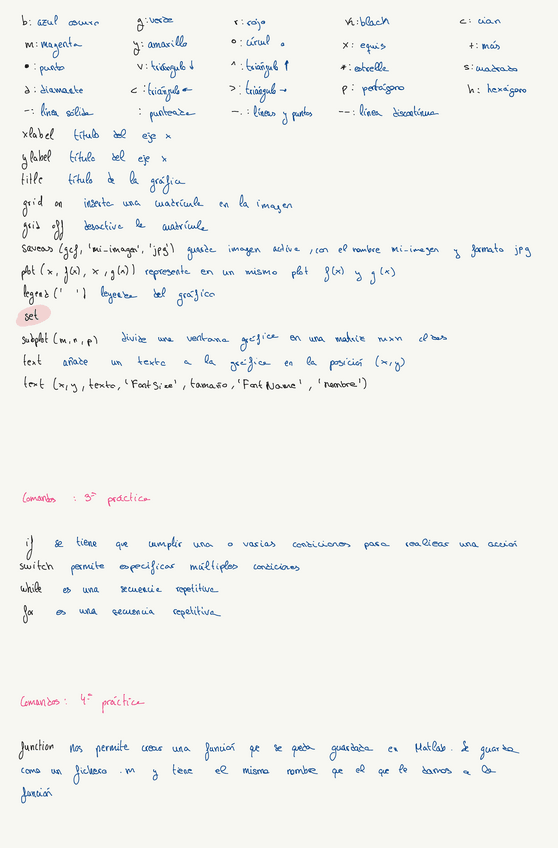 b: azul oscuro g: verde r: rojo k: black c: cian
m: magenta y: amarillo o: círcul o x: equis +: más
•: punto v: triángulo ↓ ^: triángulo ↑ *: estrella s: cuadrado
d: diamante <: triángulo ← >: triángulo → p: pentágono h: hexágono
-: línea sólida : punteada -.: líneas y puntos --: línea discontinua
xlabel título del eje x
ylabel título del eje x
title título de la gráfica
grid on inserta una cuadrícula en la imagen
grid off desactiva la cuadrícula
saveas (gcf, 'mi-imagen', 'jpg') guarda imagen activa, con el nombre mi-imagen y formato jpg
plot (x, f(x), x, g(x)) representa en un mismo plot f(x) y g(x)
legend (' ') leyenda del gráfico
set
subplot (m,n,p) divide una ventana gráfica en una matriz mxn
text añade un texto a la gráfica en la posición (x,y)
text (x,y, texto, 'FontSize', tamaño, 'FontName', 'nombre')
Comandos : 3ª práctica
if se tiene que cumplir una o varias condiciones para realizar una acción
switch permite especificar múltiples condiciones
while es una secuencia repetitiva
for es una secuencia repetitiva
Comandos: 4ª práctica
function nos permite crear una función que se queda guardada en Matlab. Se guarda
como un fichero .m y tiene el mismo nombre que el que le damos a la
función